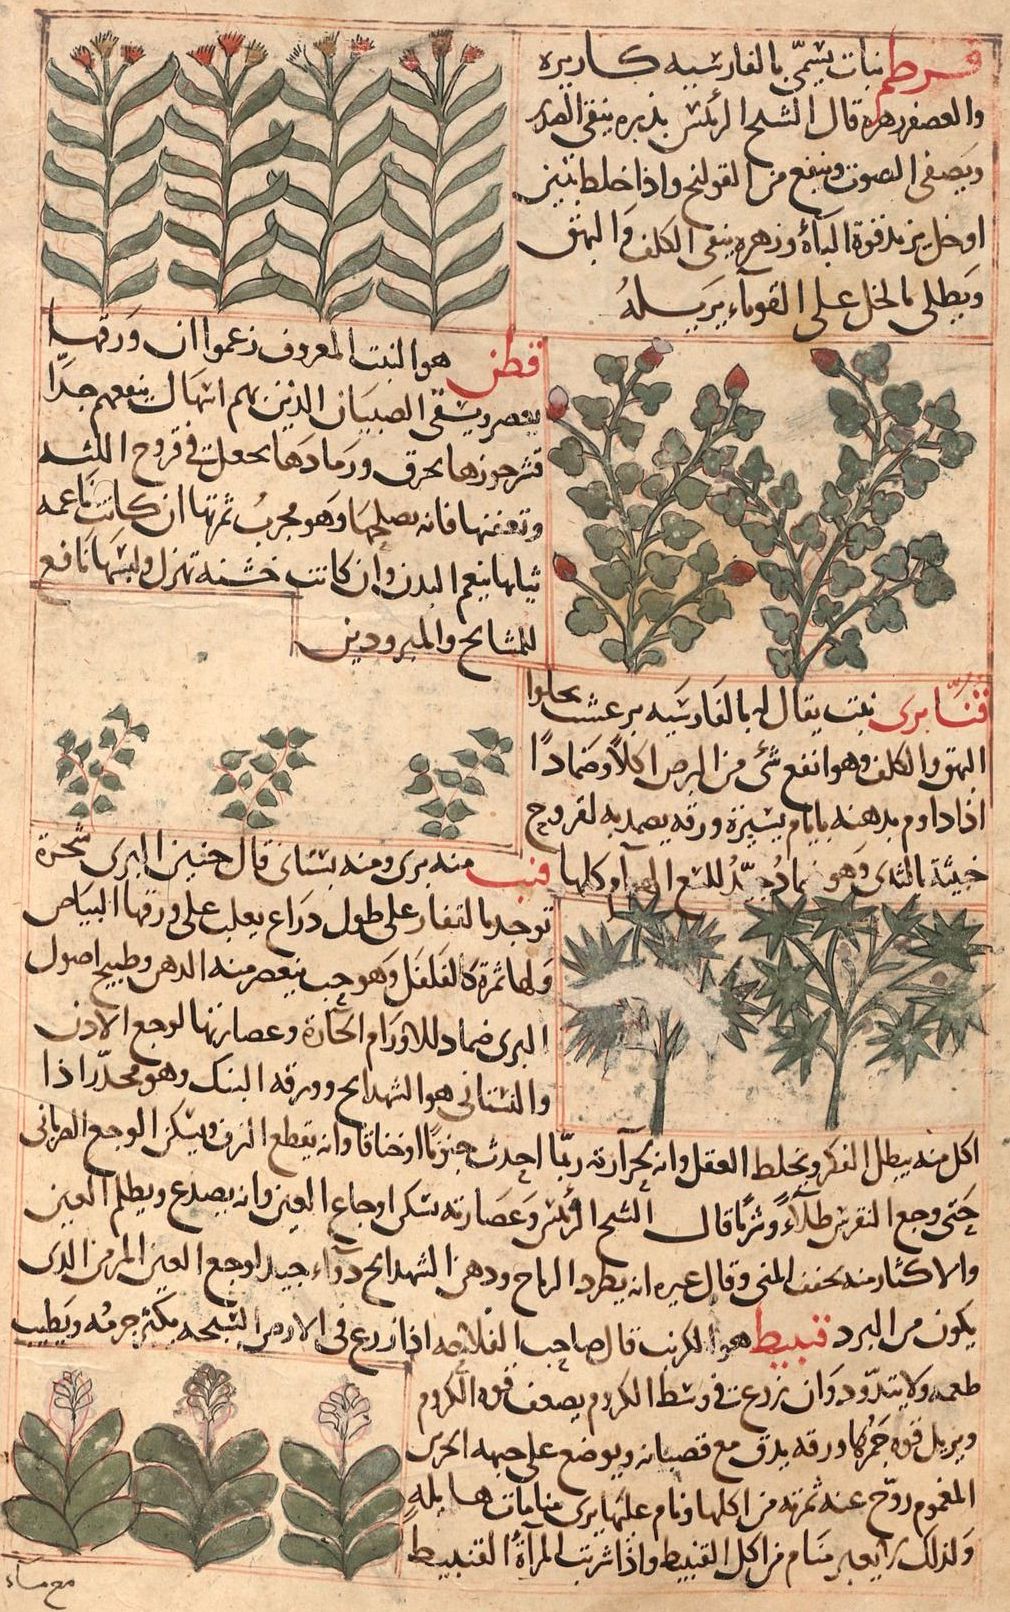 قرطم نبات يسمى بالفارسيه كاريره
والعصفر زهره قال الشيخ الرئيس بذره ينقى الصدر
ويصفى الصوت وينفع من القولنج واذا خلط بتين
او خل يزيد قوة الباءة وزهره ينقى الكلف والبهق
ويطلى بالخل على القوباء يزيله
قطن هو النبت المعروف زعموا ان ورقها
يعصر ويسقى الصبيان الذين بهم اسهال ينفعهم جدا
قشر جوزها يحرق ورمادها يجعل فى قروح اللثه
وتعفنها فانه يصلحها وهو مجرب ثمرتها ان كانت ناعمه
ثيابها ينعم البدن وان كانت خشنه تهزل ولبسها نافع
للمشايخ والمبرودين
قنابرى نبت يقال له بالفارسيه برعشت يجلوا
البهق والكلف وهو انفع شئ من البرص اكلا وضمادا
اذا داوم بدهنه بايام يسيرة ورقه يضمد به لقروح
خبيثة بالثدى وهو ضماد جيد للسع الهوام وكلها
قنب منه برى ومنه بستانى قال حنين البرى شجرة
توجد بالقفار على طول ذراع يغلب على ورقها البياض
ولها ثمرة كالفلفل وهو حب ينعصر منه الدهن وطبيخ اصول
البرى ضماد للاورام الحارة وعصارتها لوجع الاذن
والبستانى هو الشهدانج وورقه البنك وهو مخدر اذا
اكل منه يبطل الفكر ويخلط العقل وانه بحرارته ربما احدث جنونا او خناقا وانه يقطع النزف ويسكن الوجع الضربانى
حتى وجع النقرس طلاء وشربا قال الشيخ الرئيس وعصارته تسكن اوجاع العين وانه يصدع ويظلم العين
والاكثار منه يجفف المنى وقال غيره انه يطرد الرياح ودهن الشهدانج دواء جيد لوجع العين المزمن الذى
يكون من البرد قنبيط هو الكرنب قال صاحب الفلاحه اذا زرع فى الارض السبخه يكثر جرمه ويطيب
طعمه ولا يتدود وان زرعت فى وسط الكروم يضعف قوه الكروم
ويزيل قوه خمرها ورقه يدق مع قضبانه ويوضع على جبهه الحزين
المغموم روح عنه ثمرته من اكلها ونام عليها يرى منامات هايله
ولذلك لا يعبر منام من اكل القنبيط واذا شربت المرأة القنبيط